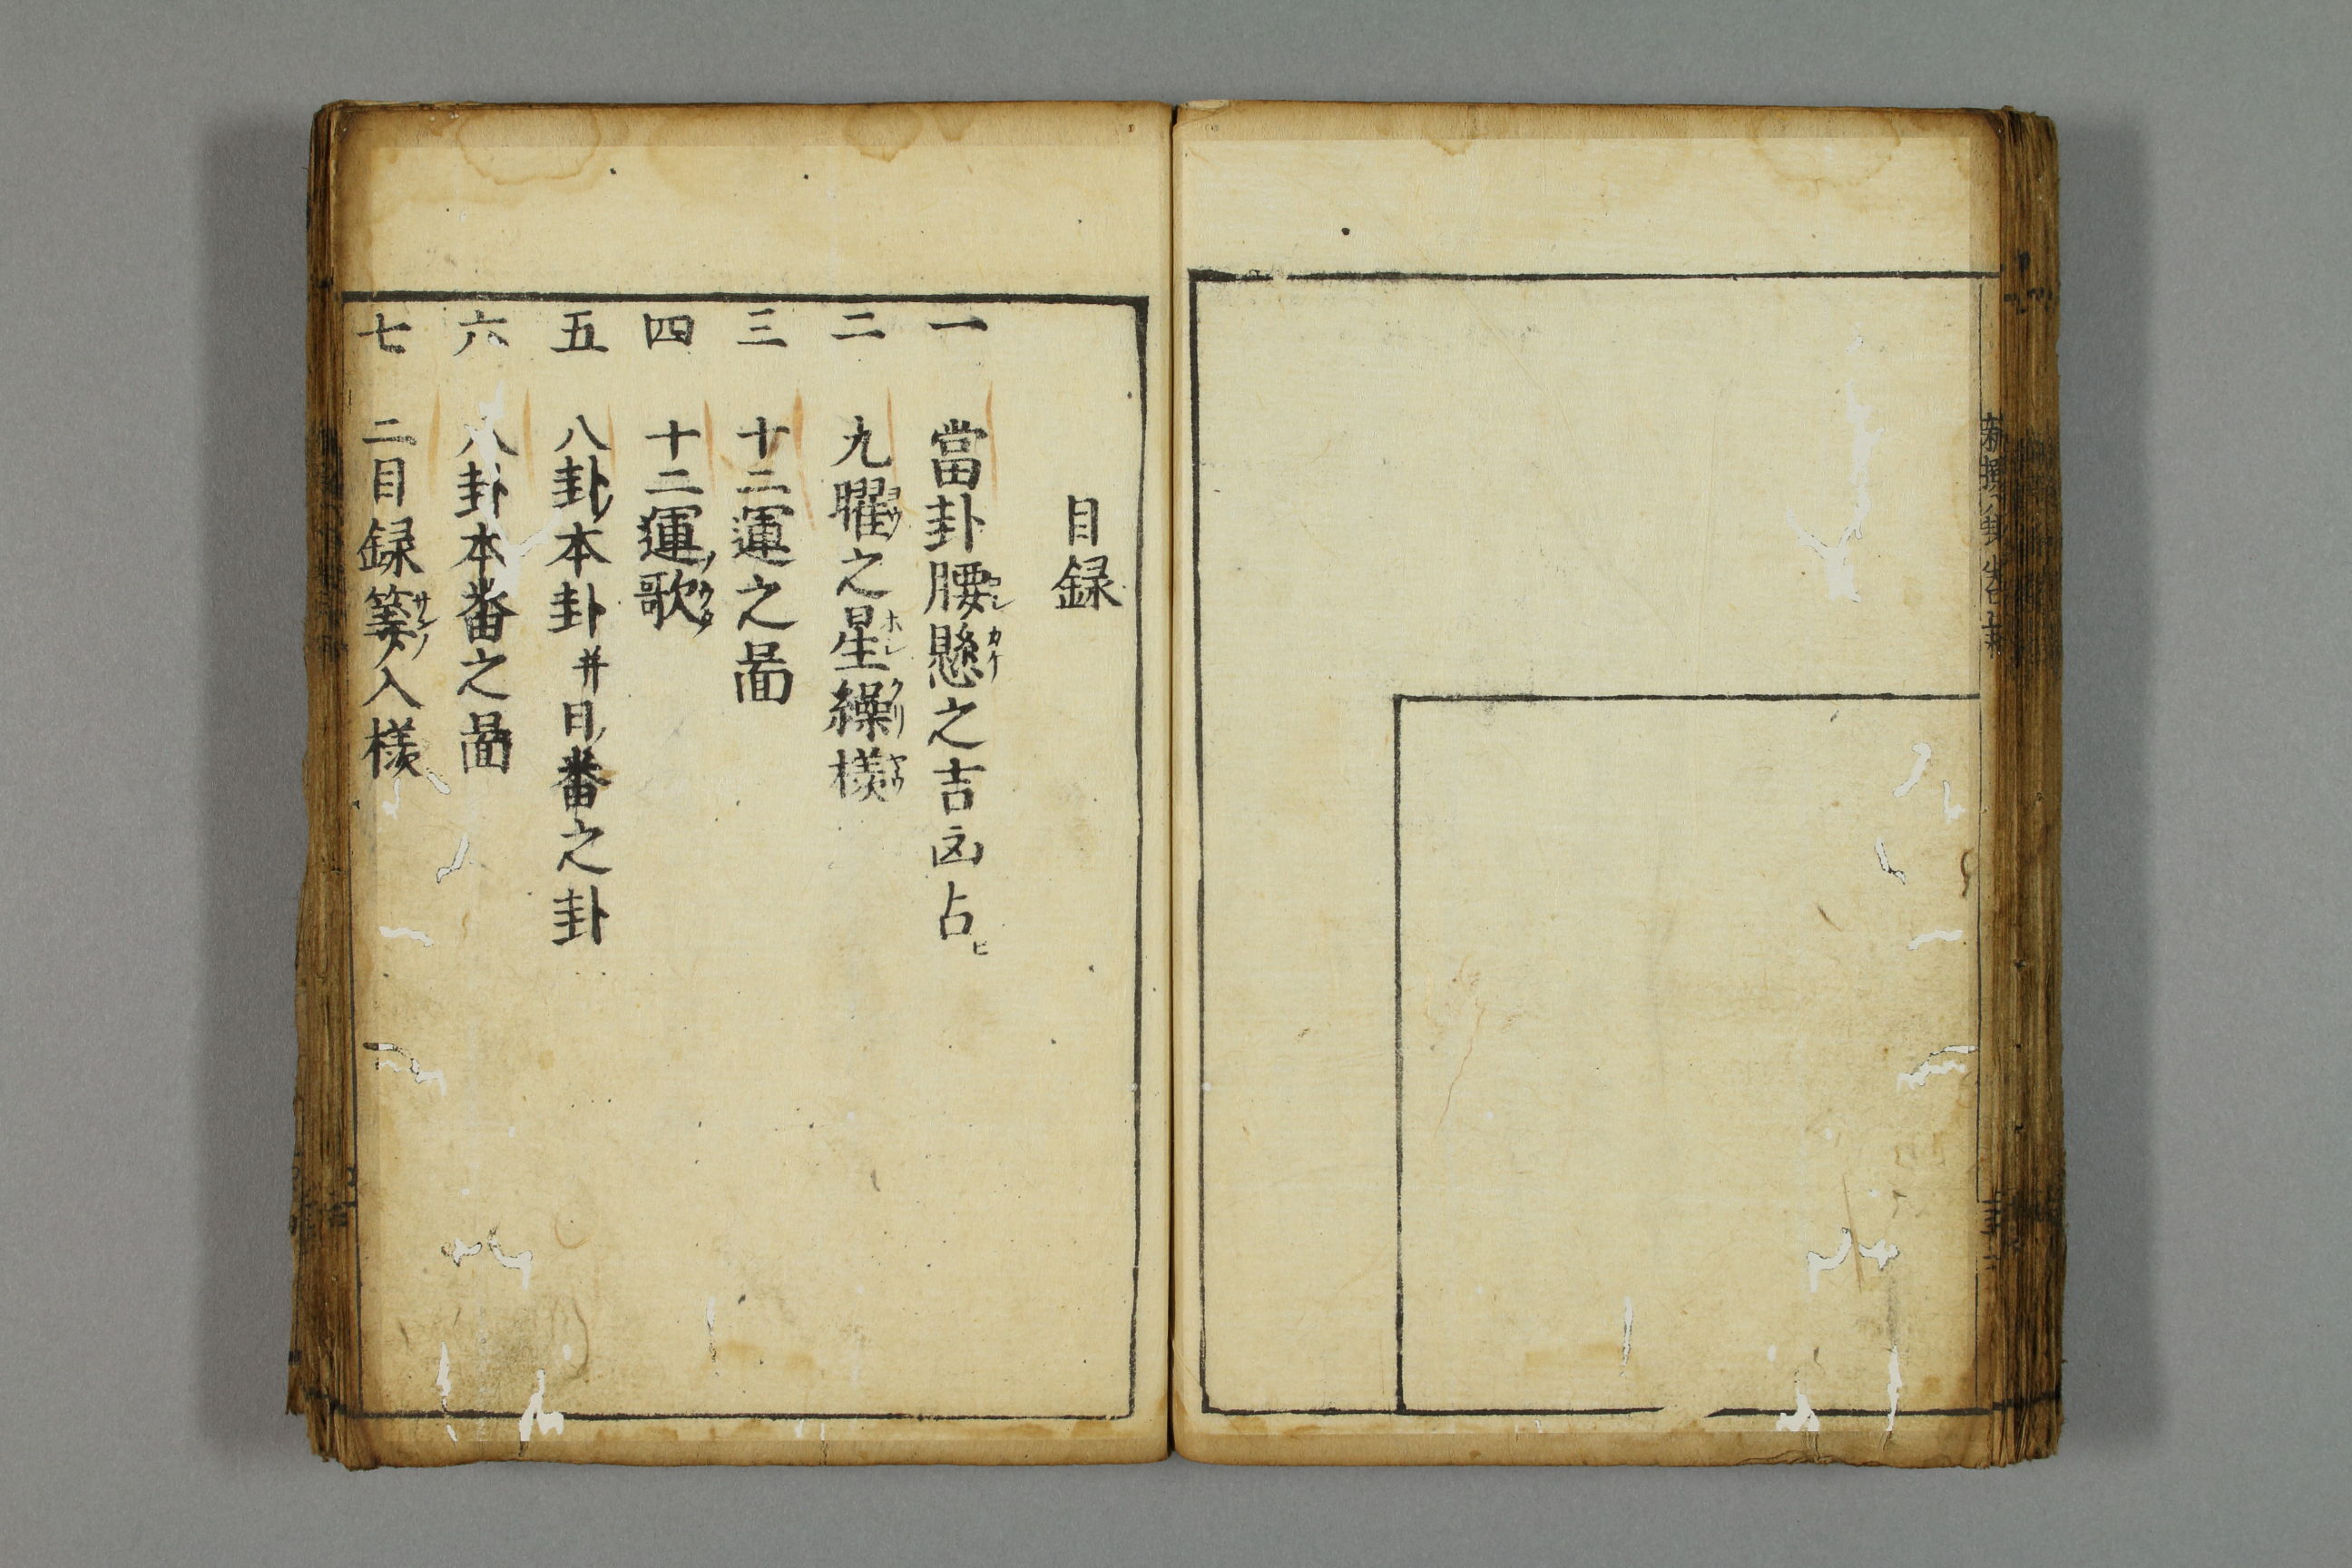 目録
一 當卦腰懸之吉凶占ヒ
二 九曜之星繰様
三 十二運之啚
四 十二運歌
五 八卦本卦并日番之卦
六 八卦本番之啚
七 二目録筭入様